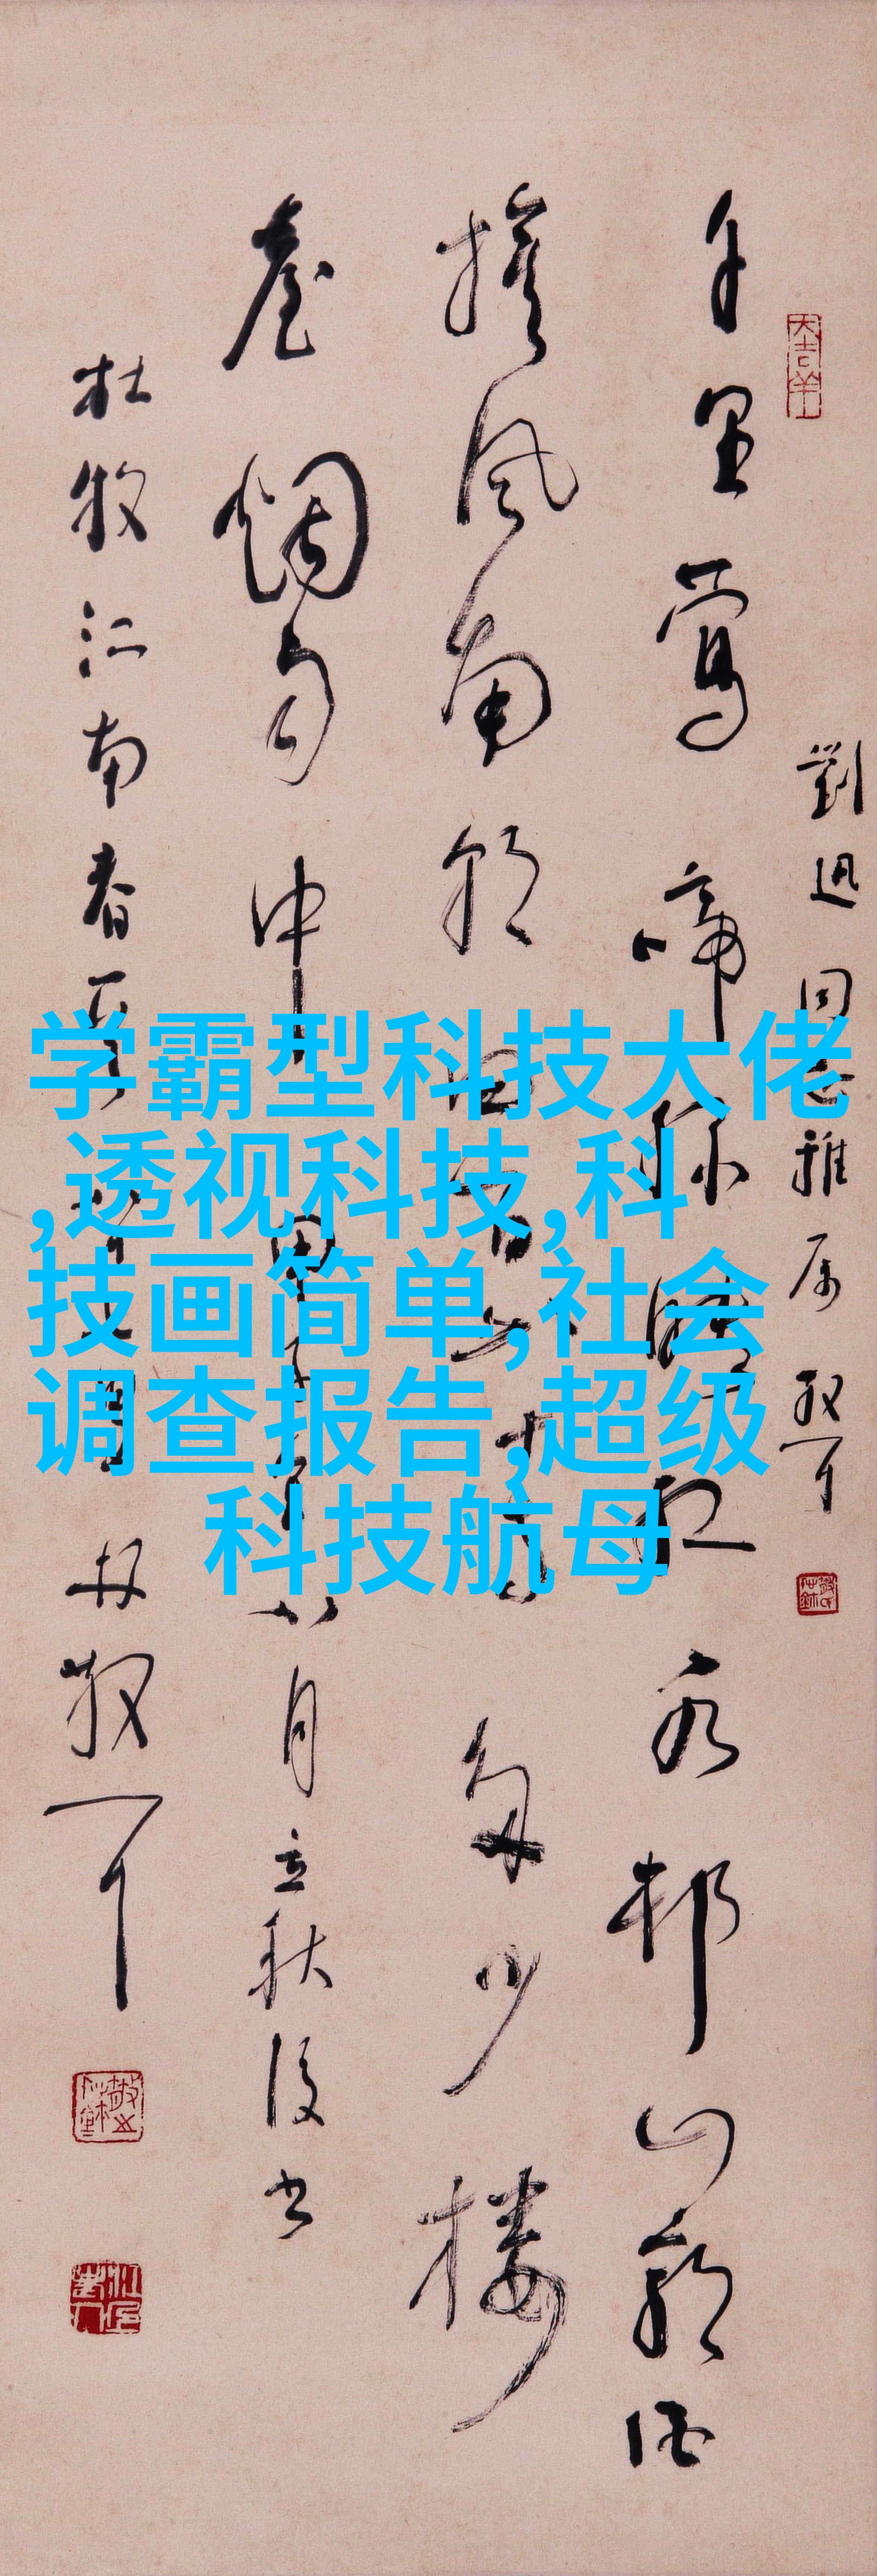 学霸型科技大佬
,透视科技,科
技画简单,社会
调查报告,超级
科技航母
大吉羊
劉迅同志雅属 散耳
千里莺啼绿映红水村山郭酒
旗风南朝四百八十寺多少楼
臺烟雨中 八月立秋後书
杜牧江南春一首 林散耳